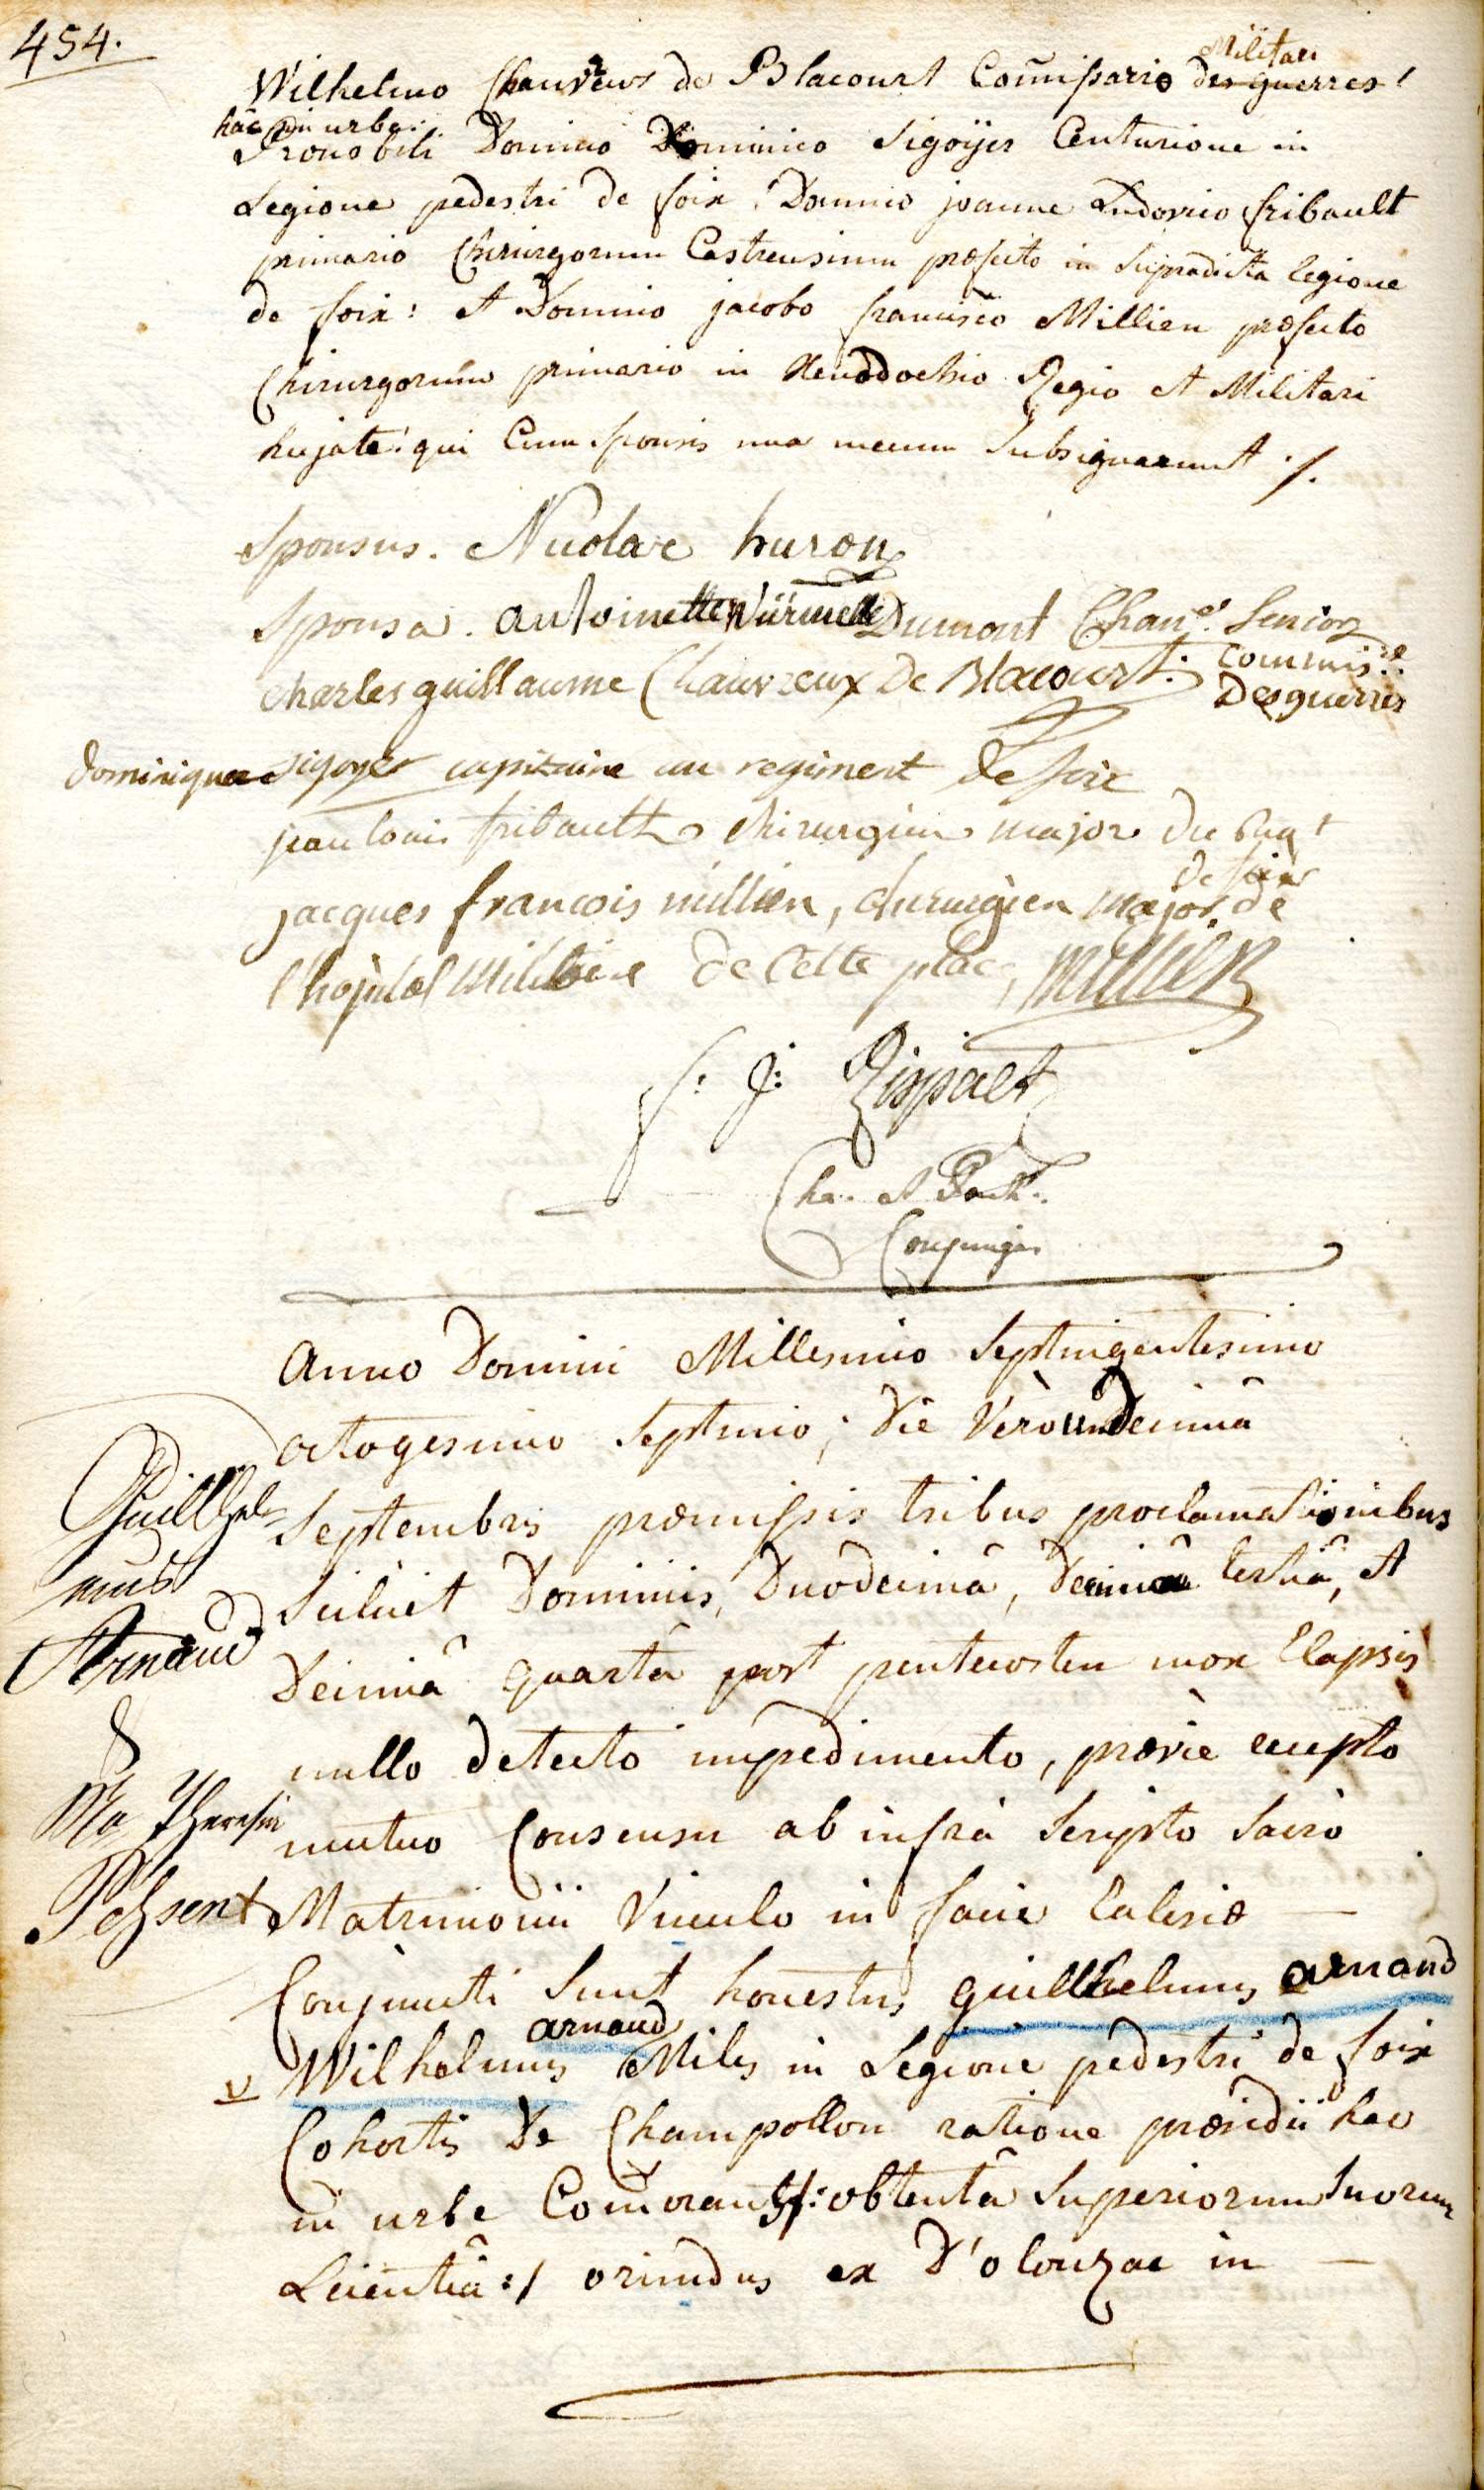 454.
Militari
Wilhelmo Chauveux de Blacourt Com̃issario des guerres
hâc in urbe:
Prænobili Domino Dominico Sigoÿer Centurione in
Legione pedestri de foix, Domino joanne Ludovico fribault
primario Chirurgorum Castrensium præfecto in Supradicta legione
de foix: et Domino jacobo francisco Millien præfecto
Chirurgorum primario in Xenodochio Regio et Militari
hujate: qui Cum Sponsis una mecum Subsignarunt ./.
Sponsus. Nicolae huron
Sponsa. antoinette Würmelle Dumont Senior
Charles guillaume Chauvreux De Blacourt. Commis.re
Des guerres
dominique sigoyer capitaine au regiment de foix
jean louis fribault chirurgien major du
de foix
jacques francois millien, chirurgien major de
l'hopital Militaire de Cette place, Millien
f: J: Rispalet
Cha. et
Conjunges
Anno Domini Millesimo Septingentesimo
octogesimo Septimo; die Verò undecimâ
Septembris præmissis tribus proclamationibus
Scilicet Dominicis, Duodecimâ, Decimâ tertiâ, et
Decimâ quartâ post pentecosten mox Elapsis
nullo detecto impedimento, prævie accepto
mutuo Consensu ab infrà Scripto Sacro
Matrimonii Vinculo in facie Ecclesiæ —
Conjuncti Sunt honestus guillhelmus arnaud
arnaud
v Wilhelmus Miles in Legione pedestri de foix
Cohortis De Champollon ratione præsidii hac
in urbe Com̃orans /: obtentâ Superiorum Suorum
Licentiâ :/ oriundus ex D'olonzac in —
Guillhel
mus
Arnaud
&
Ma Theresia